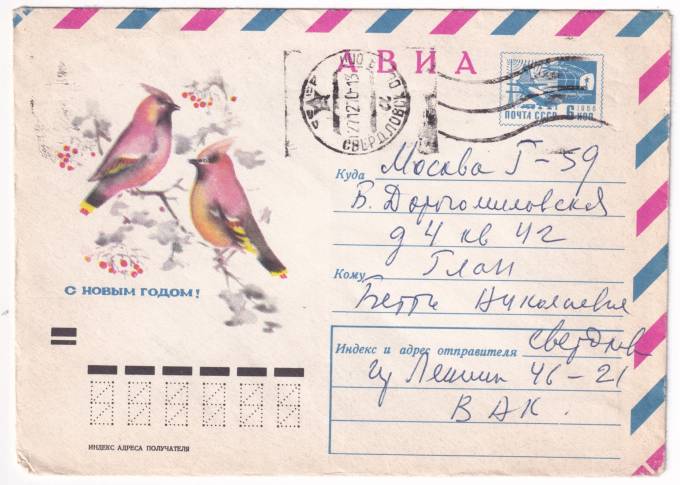 АВИА
СВЕРДЛОВСК
ПОЧТА СССР 6 КОП
1966
С НОВЫМ ГОДОМ!
Куда Москва Г-59
Б. Дорогомиловская
д 4 кв 42
Кому Глан
Бетти Николаевне
Индекс и адрес отправителя Свердлов
Ленина 46-21
ВАК.
ИНДЕКС АДРЕСА ПОЛУЧАТЕЛЯ